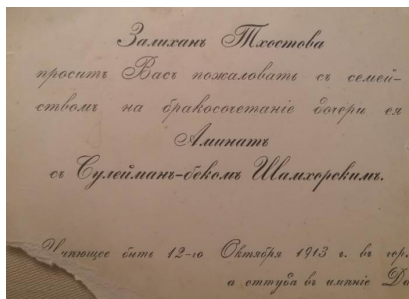 Залиханъ Тхостова
проситъ Васъ пожаловать съ семей-
ствомъ на бракосочетаніе дочери ея
Аминатъ
съ Сулейманъ-бекомъ Шамхорскимъ.
быть 12-го Октября 1913 г. въ гор.
а оттуда въ имѣніе